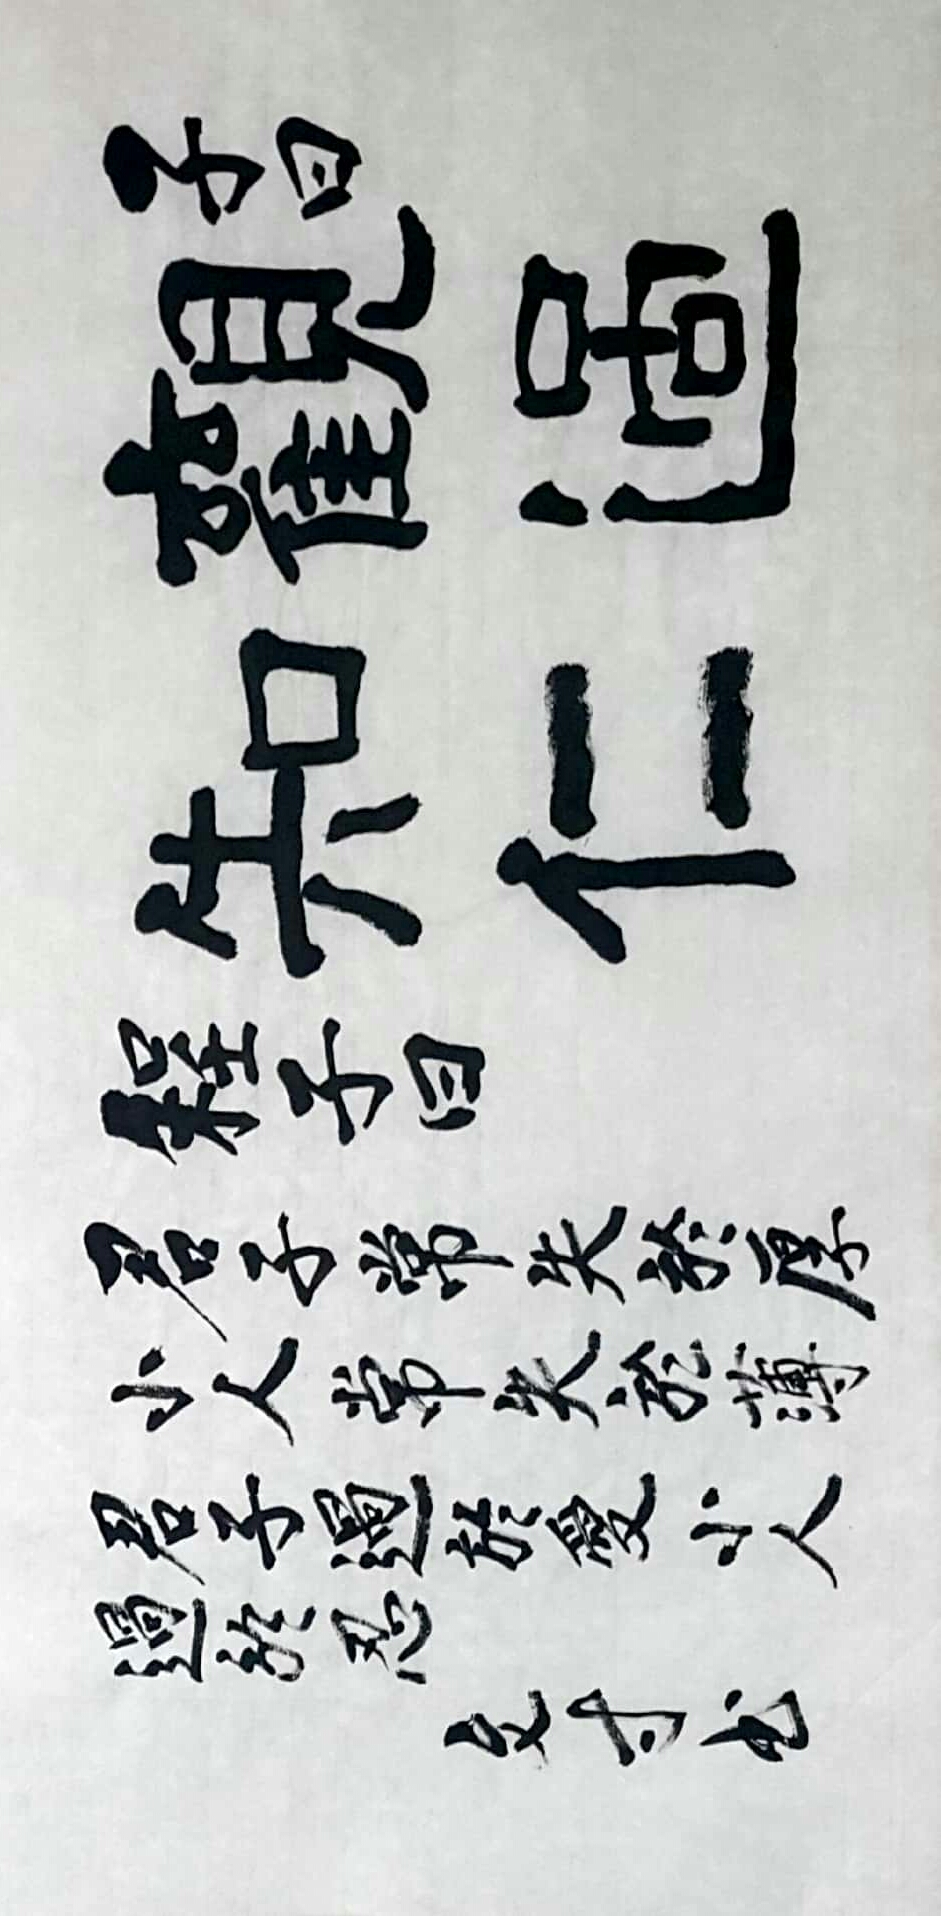 子曰
觀過
知仁
程子曰
君子常失於厚
小人常失於薄
君子過於愛小人
過於忍
文寸书